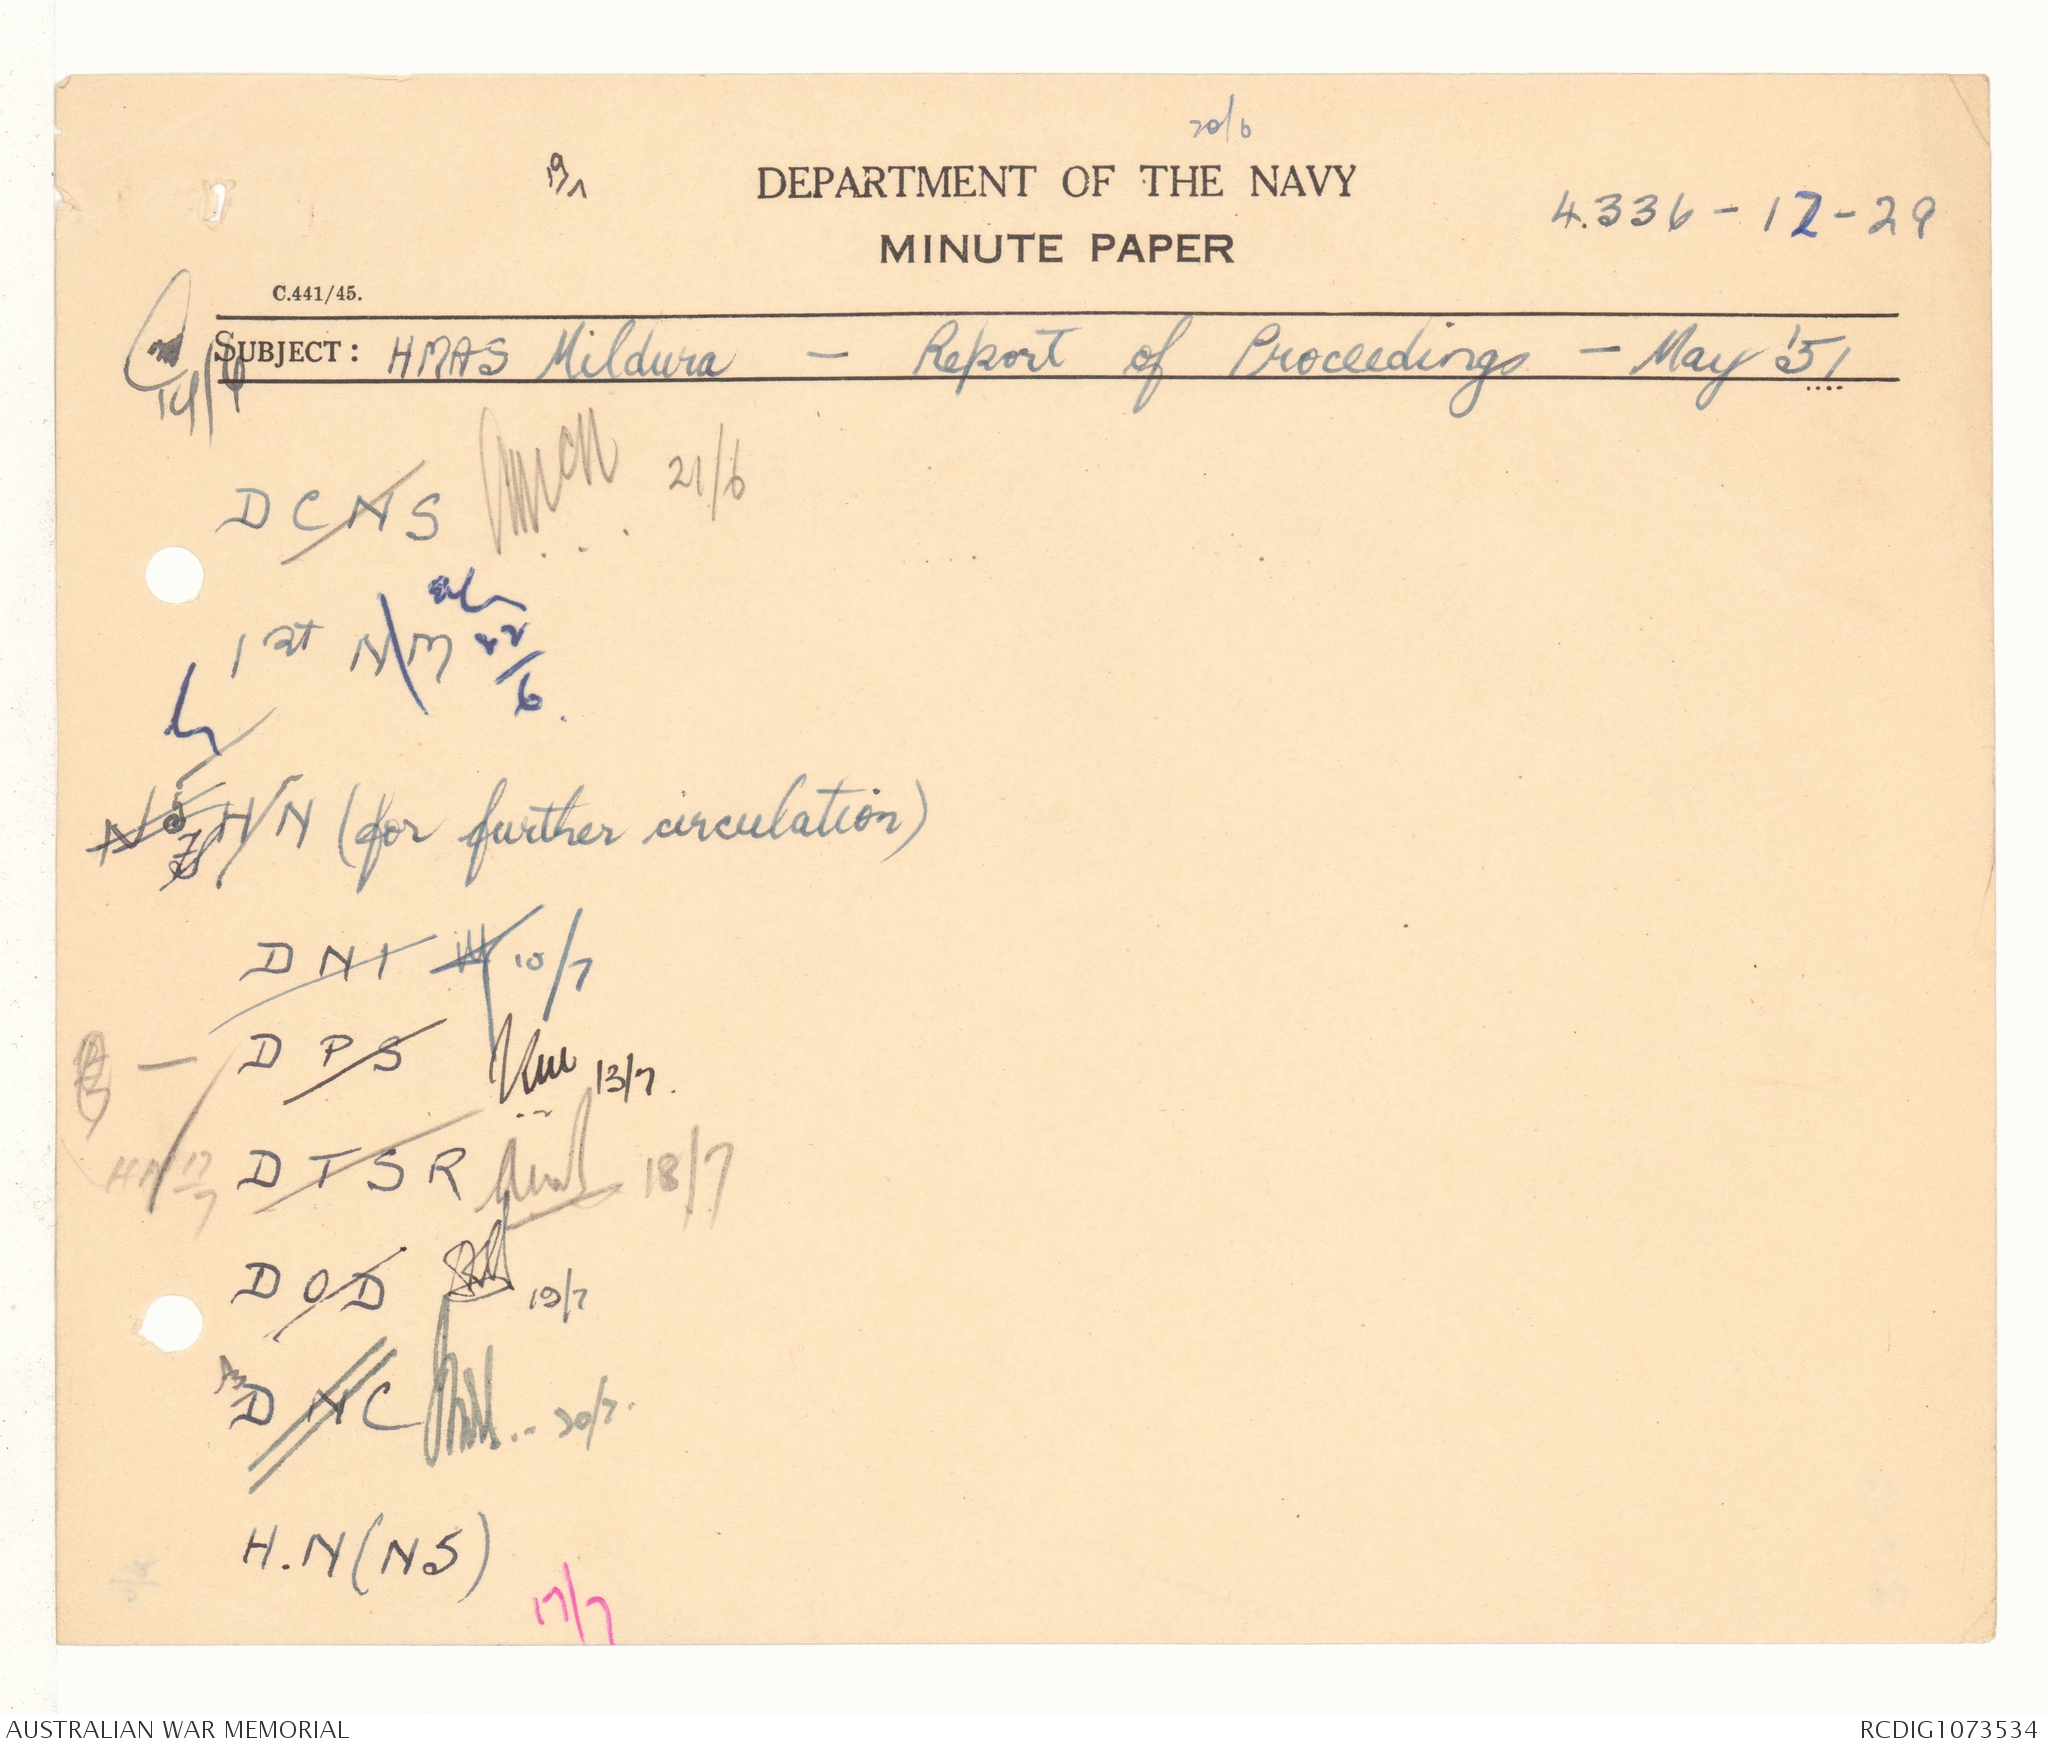 20/6
DEPARTMENT OF THE NAVY
4.336-12-29
MINUTE PAPER
C.441/45.
SUBJECT: HMAS Mildura - Report of Proceedings - May '51
DCNS 21/6
1st NM 22/6
HN (for further circulation)
DNI 10/7
DPS 13/7.
DTSR 18/7
HN 17/7
DOD 19/7
DNC 20/7.
H.N (NS)
17/7
AUSTRALIAN WAR MEMORIAL
RCDIG1073534